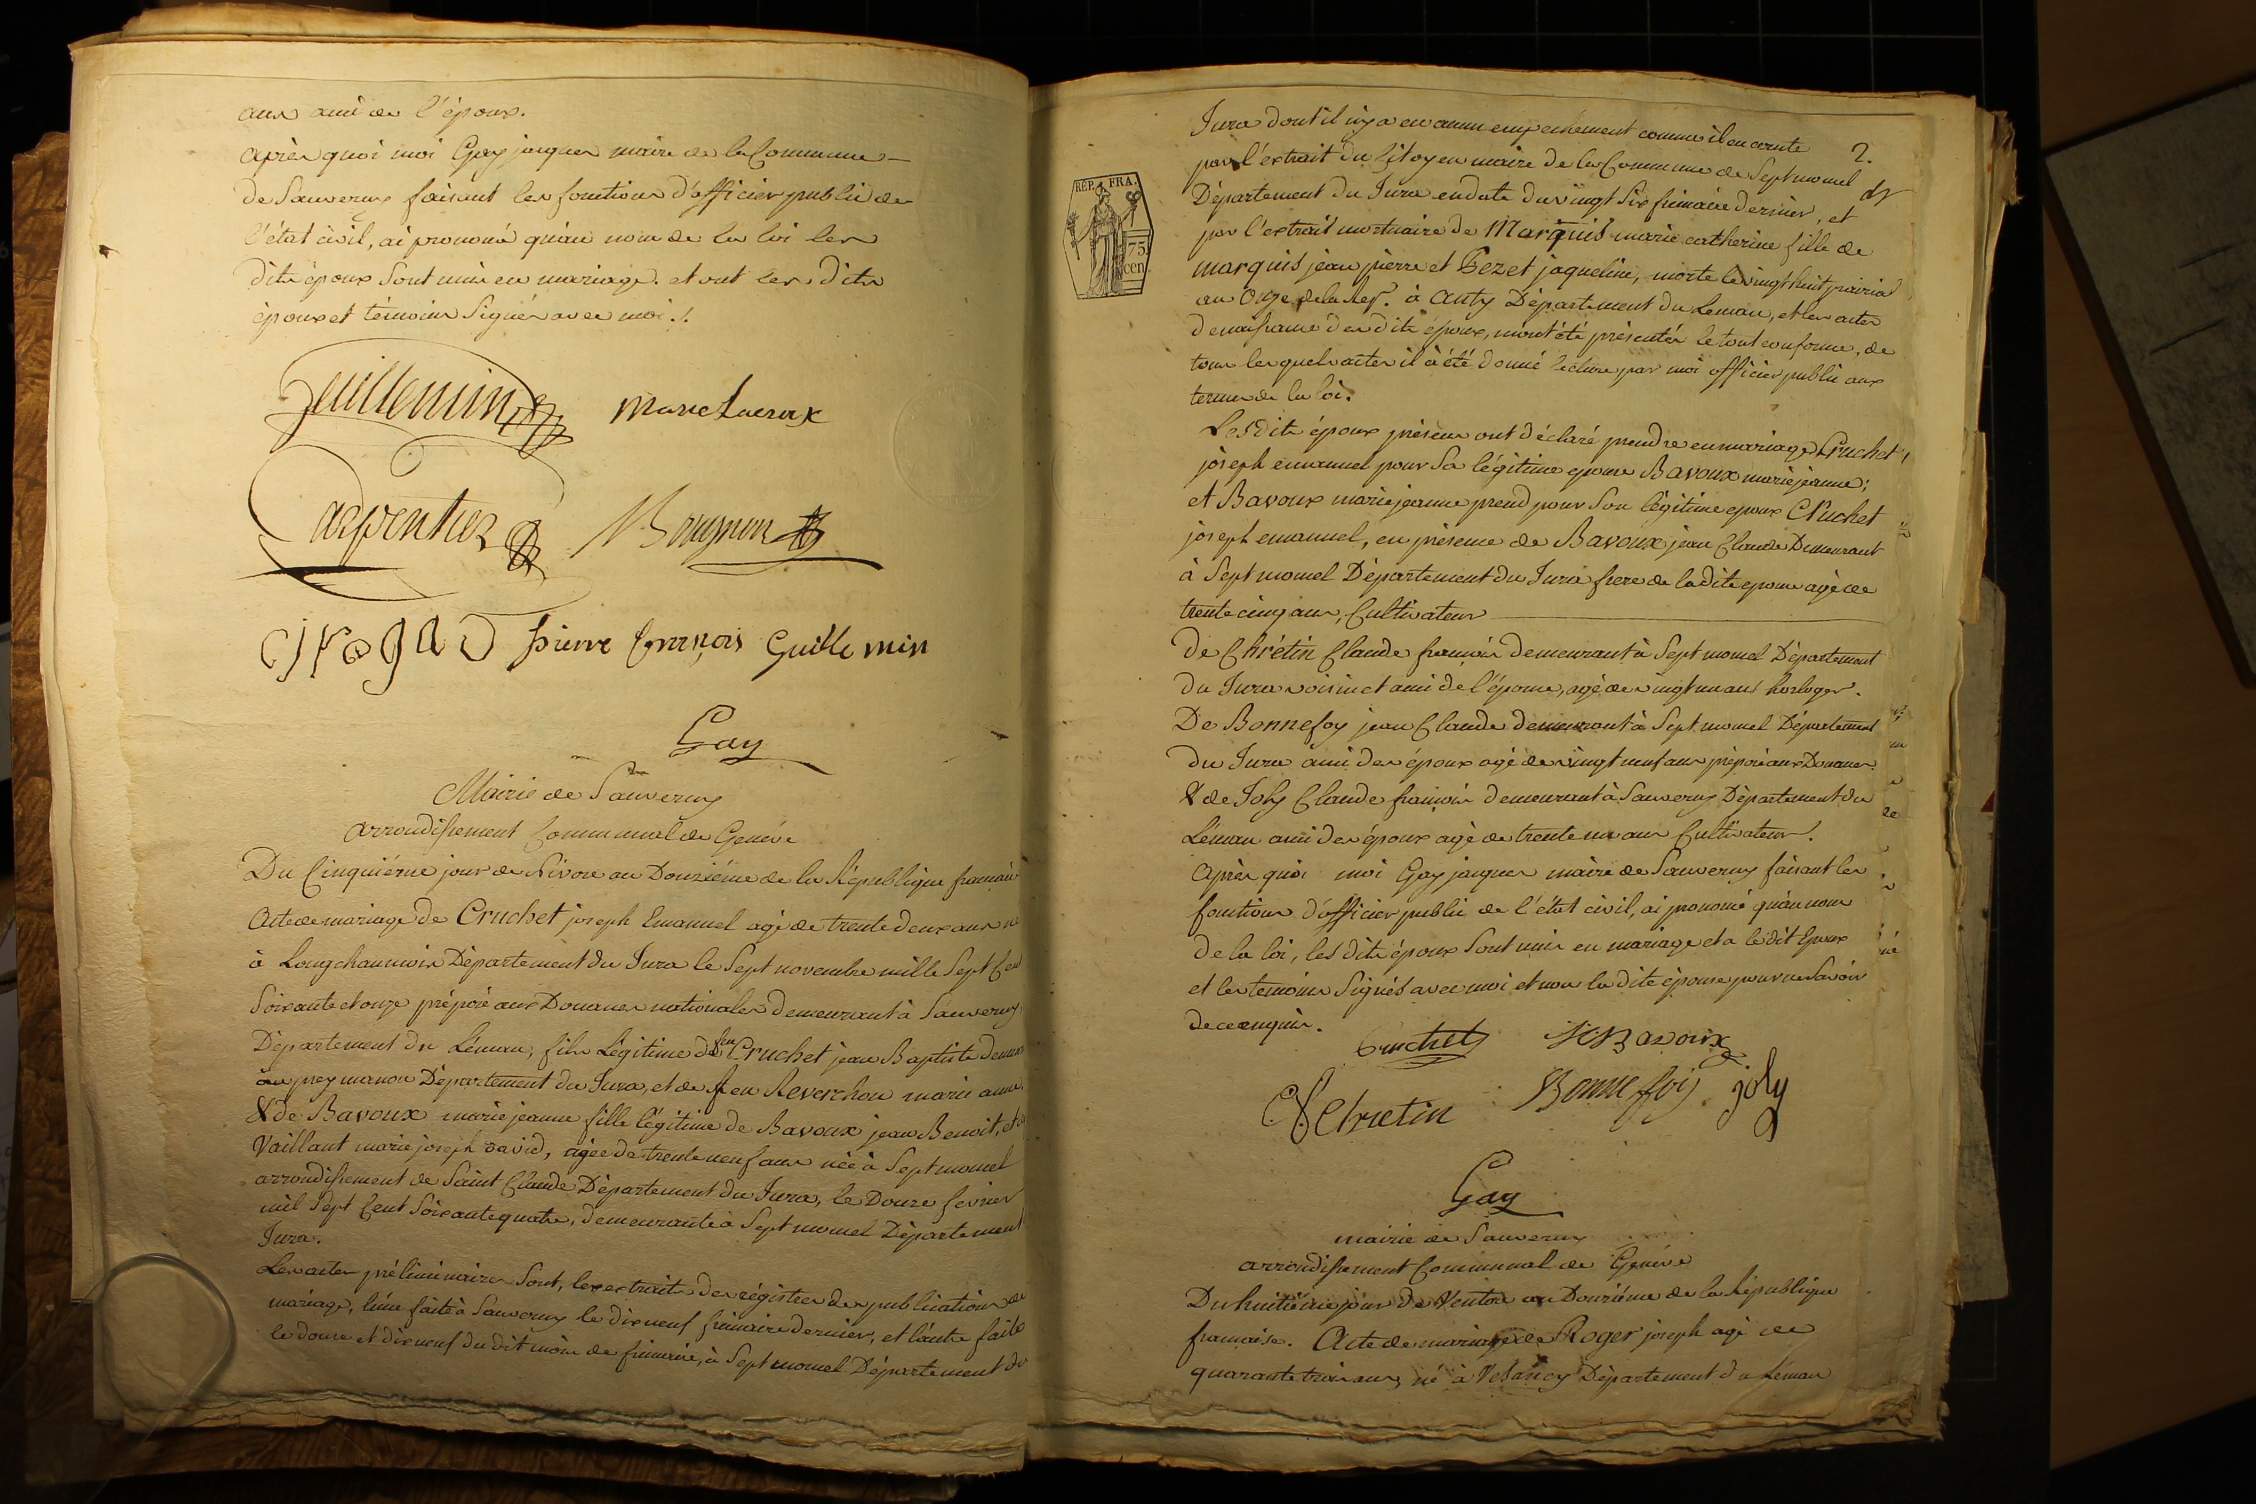 ans ami de l'époux.
après quoi moi Gay jaques maire de la Commune
de Sauverny faisant les fonctions d'officier public de
l'état civil, ai prononcé qu'au nom de la loi les
dits époux sont unis en mariage. et ont les dits
époux et témoins signés avec moi ./.
Guillemin Marc Lacroix
Carpentier Bougnon
Girogad pierre françois Guille min
Gay
Mairie de Sauverny
arrondissement Communal de Genève
Du Cinquième jour de Nivose an Douzième de la République français
Acte de mariage de Cruchet joseph Emanuel agé de trente deux ans n
à Longchaumois Département du Jura le Sept novembre mille Sept Cent
Soixante et onze préposé aux Douanes nationales demeurant à Sauverny
Département du Léman, fils légitime de feu Cruchet jean Baptiste demeur
au prez manon Département du Jura, et de feu Reverchon marie anne
& de Bavoux marie jeanne fille légitime de Bavoux jean Benoit, et de
Vaillant marie joseph david, agée de trente neuf ans née à Septmoncel
arrondissement de Saint Claude Département du Jura, le Douze fevrier
mil Sept Cent Soixante quatre, demeurante à Sept moncel Département
Jura.
Les actes préliminaires Sont, les extraits des régistres des publications de
mariage, l'une faite à Sauverny le dix neuf frimaire dernier, et l'autre faite
le douze et dix neuf du dit mois de frimaire, à Sept moncel Département du
2.
Jura dont il n'y a eu aucun empechement comme il en conste
par l'extrait du Citoyen maire de la Commune de Septmoncel
Département du Jura en date du vingt Six frimaire dernier, et
REP. FRA.
75
cen.
par l'extrait mortuaire de Marquis marie catherine fille de
marquis jean pierre et Pezet jaqueline, morte le vingt huit prairial
an Onze de la Rep. à Anty Département du Leman, et les actes
de naissance des dits époux, m'ont été présentés le tout conforme, de
tous lesquels actes il à été donné lecture par moi officier public aux
termes de la loi.
Lesdits époux présens ont déclaré prendre en mariage Cruchet
joseph emanuel pour Sa légitime epouse Bavoux marie jeanne;
et Bavoux marie jeanne prend pour Son légitime epoux Cruchet
joseph emanuel, en présence de Bavoux jean Claude Demeurant
à Sept moncel Département du Jura frere de la dite epouse agé de
trente cinq ans, Cultivateur
De Chrétin Claude françois demeurant à Sept moncel Département
du Jura voisin et ami de l'épouse, agé de vingt un ans horloger.
De Bonnefoy jean Claude demeurant à Sept moncel Département
du Jura ami des époux agé de vingt neuf ans préposé aux Douanes
& de Joly Claude françois demeurant à Sauverny Département du
Léman ami des époux agé de trente un ans Cultivateur.
Après quoi moi Gay jaques maire de Sauverny faisant les
fonctions d'officier public de l'état civil, ai prononcé qu'au nom
de la loi, les dits époux Sont unis en mariage et a le dit Epoux
et les temoins Signés avec moi et non la dite épouse pour ne Savoir
de ce enquis.
Cruchet JC Bavoux
Chretin Bonnefoy joly
Gay
mairie de Sauverny
arrondissement Communal de Genève
Du huitième jour de Ventose an Douzième de la République
française. Acte de mariage de Roger joseph agé de
quarante trois ans, né à Vesancy Département du Léman